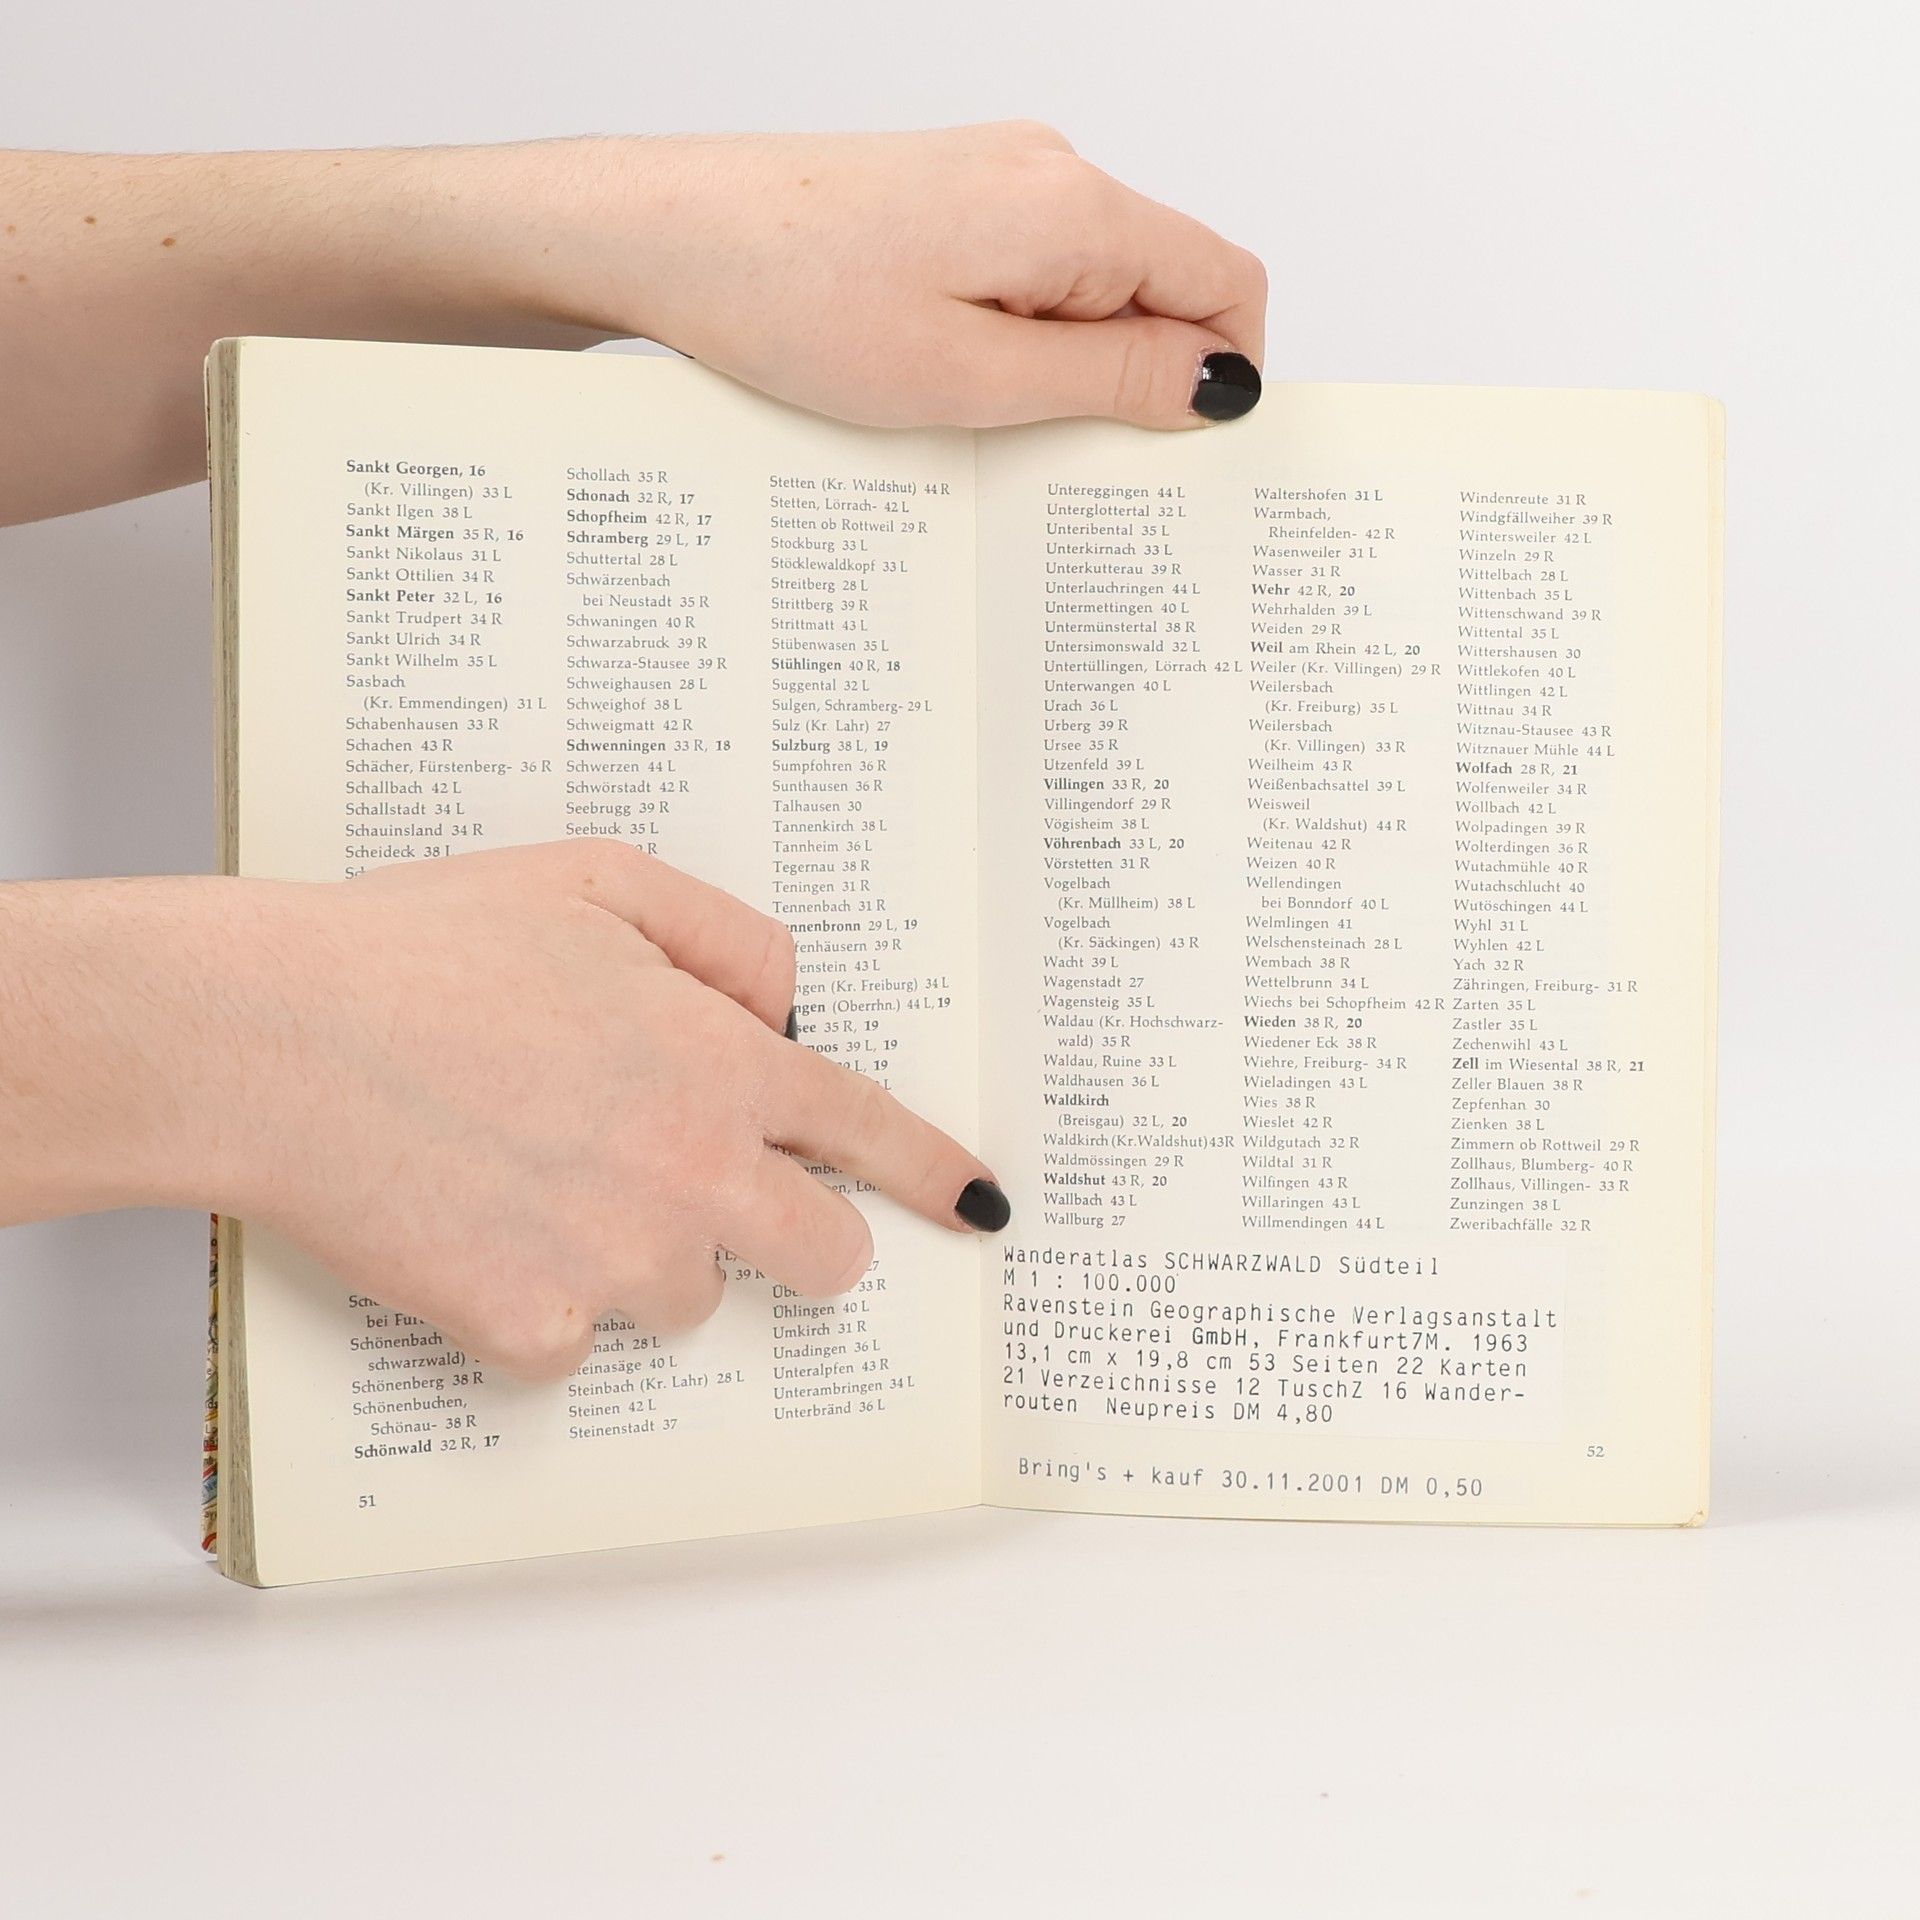 Sankt Georgen, 16
(Kr. Villingen) 33 L
Sankt Ilgen 38 L
Sankt Märgen 35 R, 16
Sankt Nikolaus 31 L
Sankt Ottilien 34 R
Sankt Peter 32 L, 16
Sankt Trudpert 34 R
Sankt Ulrich 34 R
Sankt Wilhelm 35 L
Sasbach
(Kr. Emmendingen) 31 L
Schabenhausen 33 R
Schachen 43 R
Schächer, Fürstenberg- 36 R
Schallbach 42 L
Schallstadt 34 L
Schauinsland 34 R
Scheideck 38 L
bei
Schönenbach
schwarzwald)
Schönenberg 38 R
Schönenbuchen,
Schönau- 38 R
Schönwald 32 R, 17
51
Schollach 35 R
Schonach 32 R, 17
Schopfheim 42 R, 17
Schramberg 29 L, 17
Schuttertal 28 L
Schwärzenbach
bei Neustadt 35 R
Schwaningen 40 R
Schwarzabruck 39 R
Schwarza-Stausee 39 R
Schweighausen 28 L
Schweighof 38 L
Schweigmatt 42 R
Schwenningen 33 R, 18
Schwerzen 44 L
Schwörstadt 42 R
Seebrugg 39 R
Seebuck 35 L
39 R
28 L
Steinasäge 40 L
Steinbach (Kr. Lahr) 28 L
Steinen 42 L
Steinenstadt 37
Stetten (Kr. Waldshut) 44 R
Stetten, Lörrach- 42 L
Stetten ob Rottweil 29 R
Stockburg 33 L
Stöcklewaldkopf 33 L
Streitberg 28 L
Strittberg 39 R
Strittmatt 43 L
Stübenwasen 35 L
Stühlingen 40 R, 18
Suggental 32 L
Sulgen, Schramberg- 29 L
Sulz (Kr. Lahr) 27
Sulzburg 38 L, 19
Sumpfohren 36 R
Sunthausen 36 R
Talhausen 30
Tannenkirch 38 L
Tannheim 36 L
Tegernau 38 R
Teningen 31 R
Tennenbach 31 R
29 L, 19
39 R
43 L
(Kr. Freiburg) 34 L
(Oberrhn.) 44 L, 19
35 R, 19
39 L, 19
L, 19
33 R
Ühlingen 40 L
Umkirch 31 R
Unadingen 36 L
Unteralpfen 43 R
Unterambringen 34 L
Unterbränd 36 L
Untereggingen 44 L
Unterglottertal 32 L
Unteribental 35 L
Unterkirnach 33 L
Unterkutterau 39 R
Unterlauchringen 44 L
Untermettingen 40 L
Untermünstertal 38 R
Untersimonswald 32 L
Untertüllingen, Lörrach 42 L
Unterwangen 40 L
Urach 36 L
Urberg 39 R
Ursee 35 R
Utzenfeld 39 L
Villingen 33 R, 20
Villingendorf 29 R
Vögisheim 38 L
Vöhrenbach 33 L, 20
Vörstetten 31 R
Vogelbach
(Kr. Müllheim) 38 L
Vogelbach
(Kr. Säckingen) 43 R
Wacht 39 L
Wagenstadt 27
Wagensteig 35 L
Waldau (Kr. Hochschwarz-
wald) 35 R
Waldau, Ruine 33 L
Waldhausen 36 L
Waldkirch
(Breisgau) 32 L, 20
Waldkirch (Kr. Waldshut) 43 R
Waldmössingen 29 R
Waldshut 43 R, 20
Wallbach 43 L
Wallburg 27
Waltershofen 31 L
Warmbach,
Rheinfelden- 42 R
Wasenweiler 31 L
Wasser 31 R
Wehr 42 R, 20
Wehrhalden 39 L
Weiden 29 R
Weil am Rhein 42 L, 20
Weiler (Kr. Villingen) 29 R
Weilersbach
(Kr. Freiburg) 35 L
Weilersbach
(Kr. Villingen) 33 R
Weilheim 43 R
Weißenbachsattel 39 L
Weisweil
(Kr. Waldshut) 44 R
Weitenau 42 R
Weizen 40 R
Wellendingen
bei Bonndorf 40 L
Welmlingen 41
Welschensteinach 28 L
Wembach 38 R
Wettelbrunn 34 L
Wiechs bei Schopfheim 42 R
Wieden 38 R, 20
Wiedener Eck 38 R
Wiehre, Freiburg- 34 R
Wieladingen 43 L
Wies 38 R
Wieslet 42 R
Wildgutach 32 R
Wildtal 31 R
Wilfingen 43 R
Willaringen 43 L
Willmendingen 44 L
Windenreute 31 R
Windgfällweiher 39 R
Wintersweiler 42 L
Winzeln 29 R
Wittelbach 28 L
Wittenbach 35 L
Wittenschwand 39 R
Wittental 35 L
Wittershausen 30
Wittlekofen 40 L
Wittlingen 42 L
Wittnau 34 R
Witznau-Stausee 43 R
Witznauer Mühle 44 L
Wolfach 28 R, 21
Wolfenweiler 34 R
Wollbach 42 L
Wolpadingen 39 R
Wolterdingen 36 R
Wutachmühle 40 R
Wutachschlucht 40
Wutöschingen 44 L
Wyhl 31 L
Wyhlen 42 L
Yach 32 R
Zähringen, Freiburg- 31 R
Zarten 35 L
Zastler 35 L
Zechenwihl 43 L
Zell im Wiesental 38 R, 21
Zeller Blauen 38 R
Zepfenhan 30
Zienken 38 L
Zimmern ob Rottweil 29 R
Zollhaus, Blumberg- 40 R
Zollhaus, Villingen- 33 R
Zunzingen 38 L
Zweribachfälle 32 R
Wanderatlas SCHWARZWALD Südteil
M 1 : 100.000
Ravenstein Geographische Verlagsanstalt
und Druckerei GmbH, Frankfurt7M. 1963
13,1 cm x 19,8 cm 53 Seiten 22 Karten
21 Verzeichnisse 12 TuschZ 16 Wander-
routen Neupreis DM 4,80
52
Bring's + kauf 30.11.2001 DM 0,50